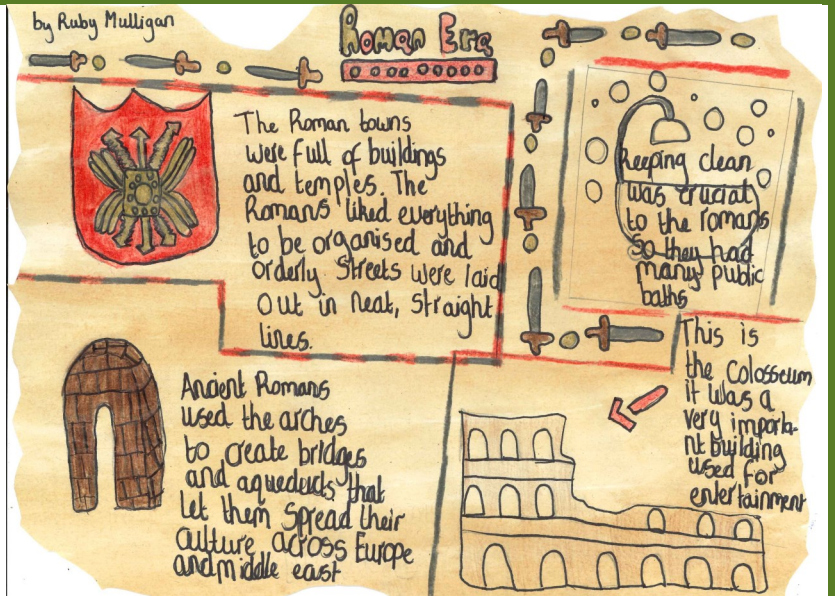 by Ruby Mulligan
Roman Era
The Roman towns
were full of buildings
and temples. The
Romans liked everything
to be organised and
orderly Streets were laid
out in neat, straight
lines.
keeping clean
was crucial
to the romans
so they had
many public
baths
Ancient Romans
used the arches
to create bridges
and aqueducts that
let them spread their
culture across Europe
and middle east
This is
the Colosseum
it was a
very importa-
nt building
used for
entertainment